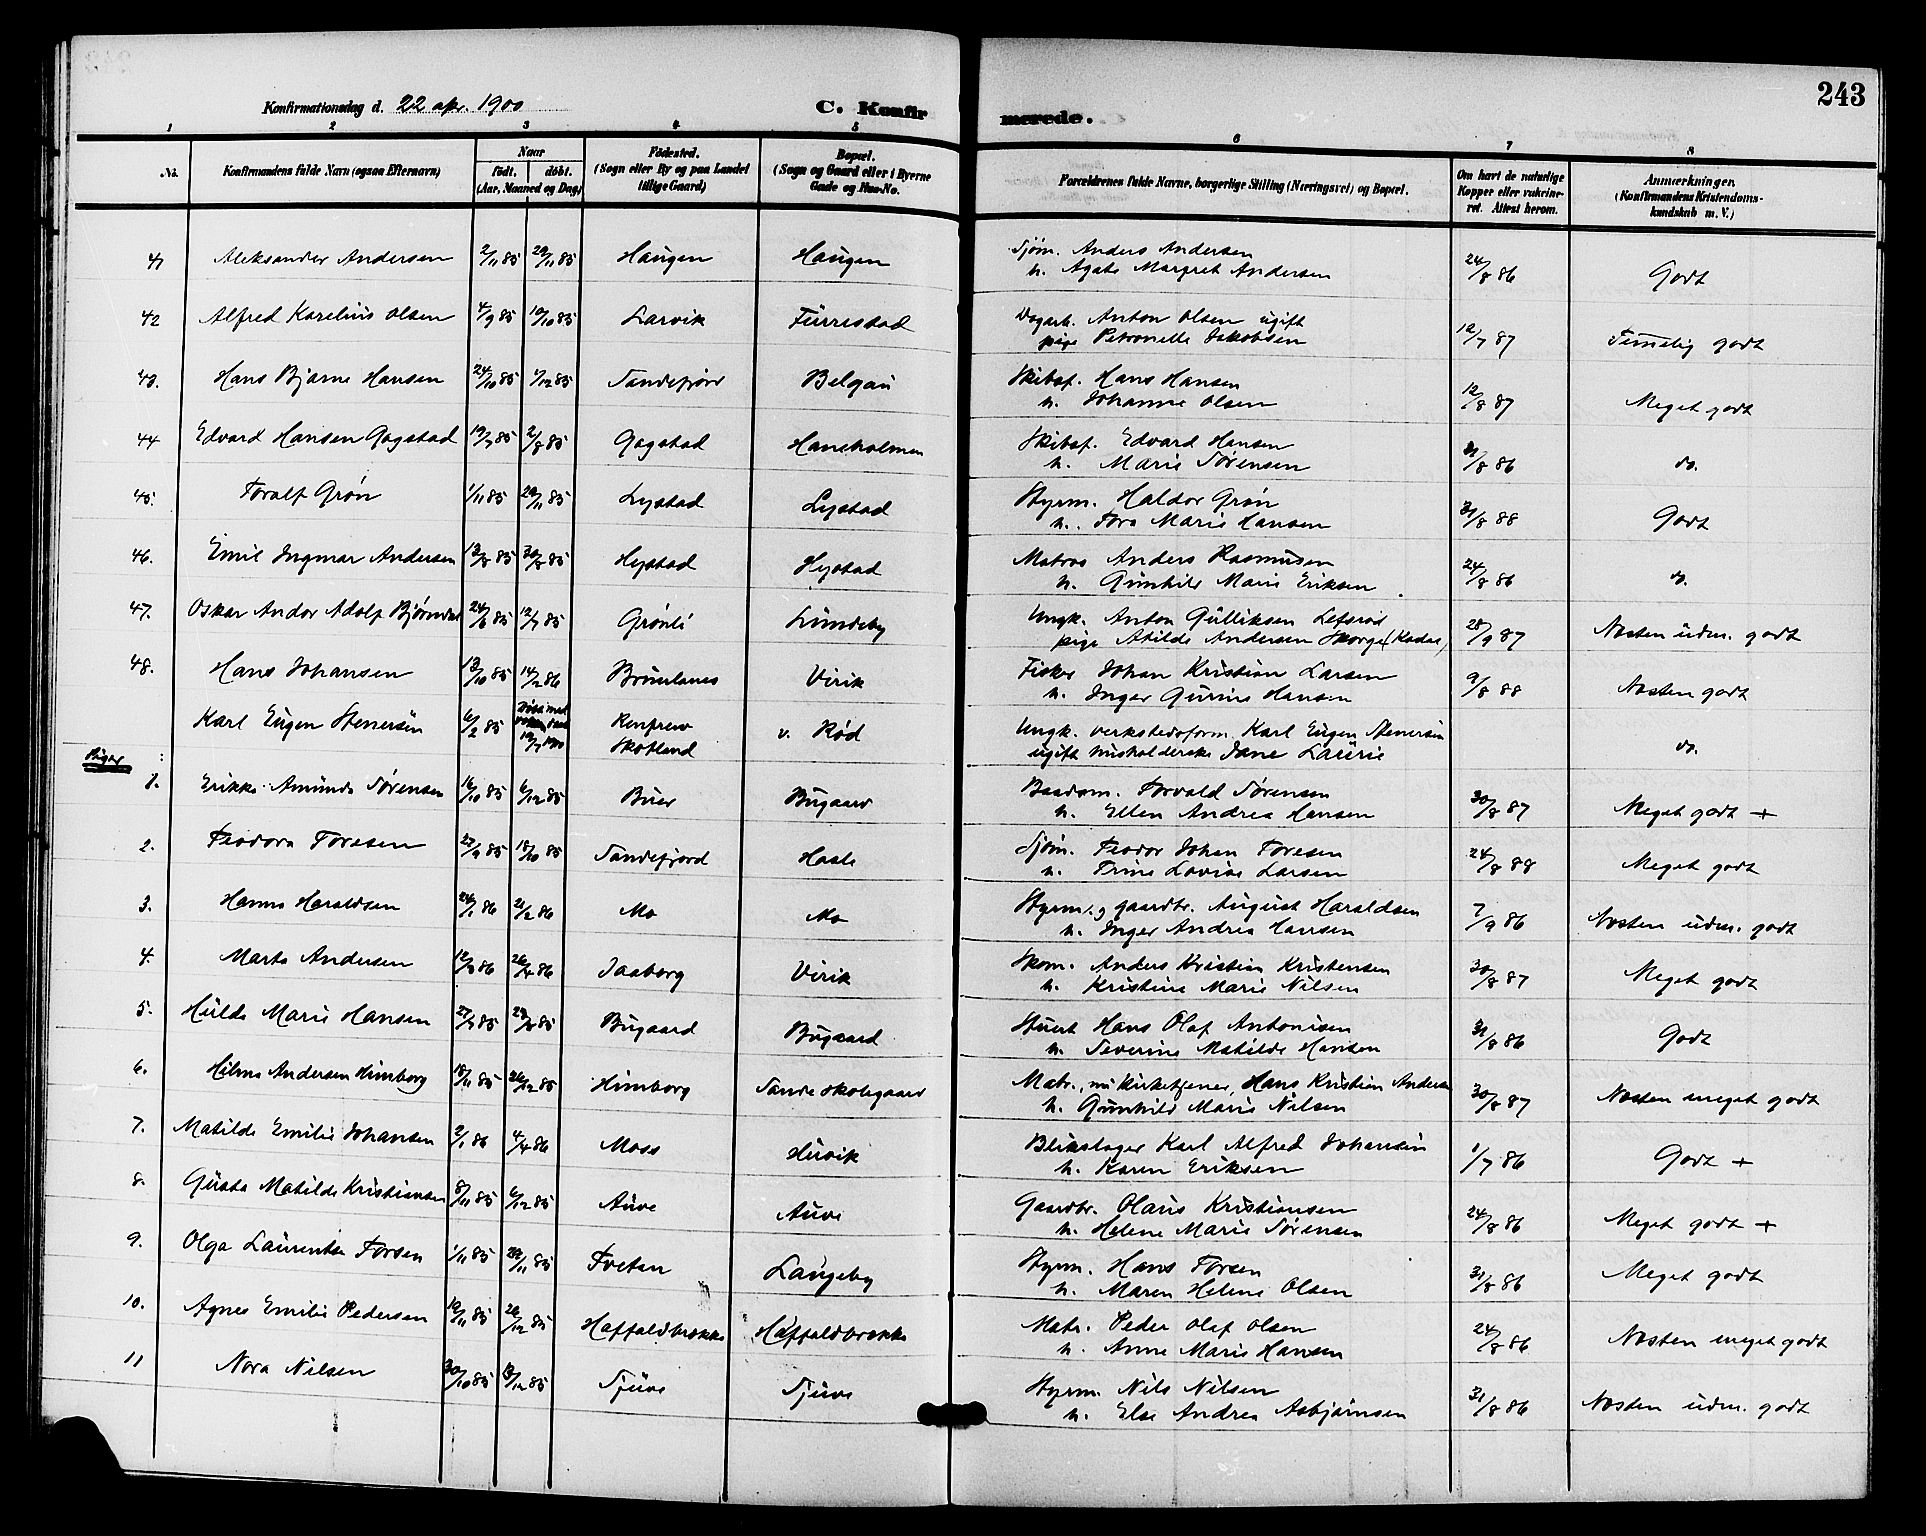 243
Konfirmationsdag d. 22 apr. 1900
C. Konfirmerede.
1 2 3 4 5 6 7 8
No. Konfirmandens fulde Navn (ogsaa Efternavn) Naar født. døbt. (Aar, Maaned og Dag) Fødested. (Sogn eller By og paa Landet tillige Gaard) Bopæl. (Sogn og Gaard eller i Byerne Gade og Hus-No. Forældrenes fulde Navne, borgerlige Stilling (Næringsvei) og Bopæl. Om havt de naturlige Kopper eller vakcineret. Attest herom. Anmærkninger. (Konfirmandens Kristendomskundskab m. V.)
41 Aleksander Andersen 2/11 85 29/11 85 Haugen Haugen Sjøm. Anders Andersen 24/8 86 Godt
h. Agate Margret Andersen
42 Alfred Karelius Olsen 4/9 85 10/10 85 Larvik Furrestad Dagarb. Anton Olsen ugift 12/7 87 Temmelig godt
pige Petronelle Jakobsen
43. Hans Bjarne Hansen 24/10 85 1/12 85 Sandefjord Belgau Skibsf. Hans Hansen 12/8 87 Meget godt
h. Johanne Olsen
44 Edvard Hansen Gogstad 19/7 85 2/8 85 Gogstad Haneholmen Skibsf. Edvard Hansen 31/8 86 do.
h. Marie Sørensen
45. Toralf Grøn 1/11 85 29/11 85 Lystad Lystad Styrm. Haldor Grøn 31/8 88 Godt
h. Tora Marie Hansen
46. Emil Ingmar Andersen 13/8 85 30/8 85 Hystad Hystad Matros Anders Rasmusen 24/8 86 do.
h. Gunhild Marie Eriksen
47. Oskar Andor Adolf Bjørndal 24/6 85 12/7 85 Grønli Lundeby Ungk. Anton Gulliksen Lefsrød 28/9 87 Næsten udm. godt
pige Atilde Andersen Skorge (Kodal)
48. Hans Johansen 13/10 85 14/2 86 Brunlanes Virik Fisker Johan Kristian Larsen 9/8 88 Næsten godt
h. Inger Gurine Hansen
Karl Eugen Stenersen 6/2 85 Renfrew Skotland v. Rød Ungk. verkstedsform. Karl Eugen Stenersen do.
ugift husholderske Jane Laurie
Piger :
1. Erikka Amunda Sørensen 16/10 85 6/12 85 Buer Bugaard Baadsm. Torvald Sørensen 30/8 87 Meget godt +
h. Ellen Andrea Hansen
2. Teodora Toresen 22/9 85 18/10 85 Sandefjord Hasle Sjøm. Teodor Johan Toresen 24/8 88 Meget godt
h. Trine Lovise Larsen
3. Hanna Haraldsen 24/1 86 21/2 86 Mo Mo Styrm. og gaardbr. August Haraldsen 7/9 86 Næsten udm. godt
h. Inger Andrea Hansen
4. Marta Andersen 12/3 86 26/4 86 Jaaberg Virik Skom. Anders Kristian Kristensen 30/8 87 Meget godt
h. Kristine Marie Nilsen
5. Hulda Marie Hansen Bugaard Bugaard Stuert Hans Olaf Antonisen 31/8 86 Godt
h. Severine Matilde Hansen
6. Hilma Andersen Himborg 15/11 85 26/12 85 Himborg Sande skolegaard Matr., nu kirketjener, Hans Kristian Andersen 30/8 87 Næsten meget godt
h. Gunhild Marie Nilsen
7. Matilde Emilie Johansen 2/1 86 4/4 86 Moss Huvik Blikslager Karl Alfred Johansen 1/7 86 Godt +
h. Karen Eriksen
8. Gusta Matilde Kristiansen 8/11 85 6/12 85 Auve Auve Gaardbr. Olaus Kristiansen 24/8 86 Meget godt +
h. Helene Marie Sørensen
9. Olga Laurentse Torsen 1/11 85 29/11 85 Tveten Langeby Styrm. Hans Torsen 31/8 86 Meget godt
h. Maren Helene Olsen
10. Agnes Emilie Pedersen 19/11 85 26/12 85 Haffaldbrække Haffaldbrække Matr. Peder Olaf Olsen 24/8 86 Næsten meget godt
h. Anne Marie Hansen
11 Nora Nilsen 30/10 85 13/12 85 Sjuve Sjuve Styrm. Nils Nilsen 31/8 86 Næsten udm. godt
h. Else Andrea Asbjørnsen